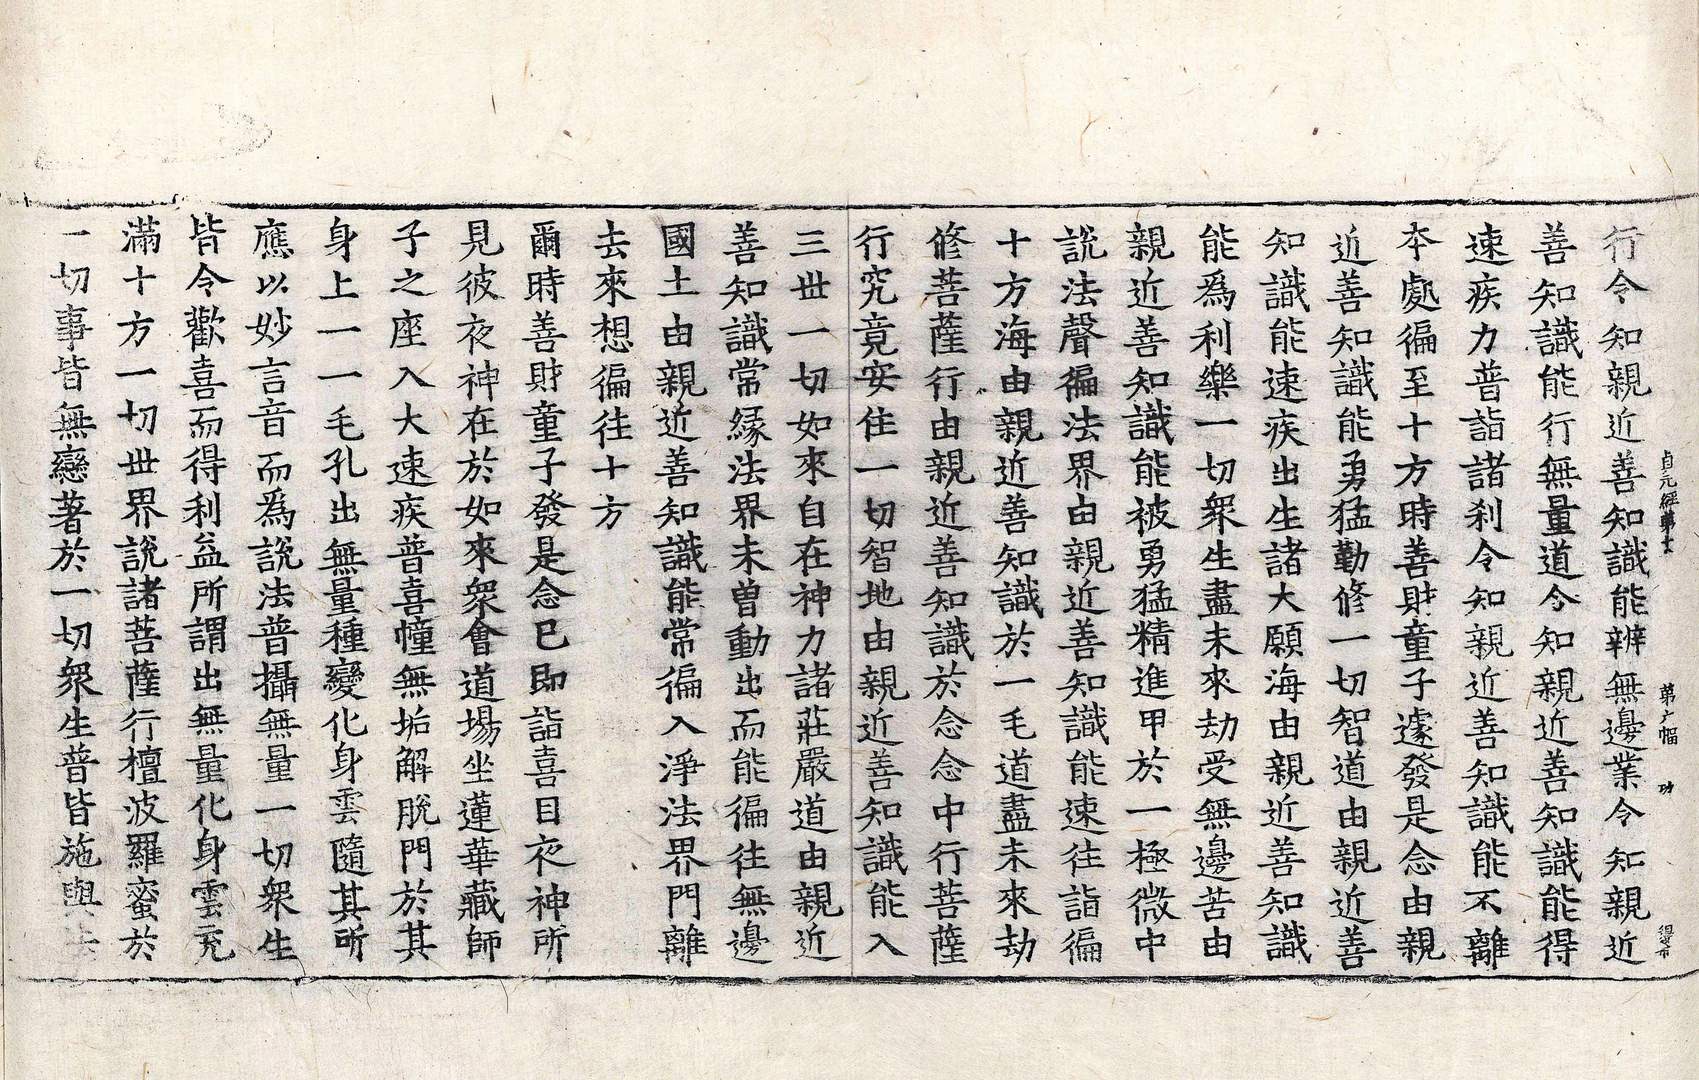 行令知親近善知識能辦無邊業令知親近
善知識能行無量道令知親近善知識能得
速疾力普詣諸刹令知親近善知識能不離
本處徧至十方時善財童子遽發是念由親
近善知識能勇猛勤修一切智道由親近善
知識能速疾出生諸大願海由親近善知識
能爲利樂一切衆生盡未來劫受無邊苦由
親近善知識能被勇猛精進甲於一極微中
說法聲徧法界由親近善知識能速往詣徧
十方海由親近善知識於一毛道盡未來劫
修菩薩行由親近善知識於念念中行菩薩
行究竟安住一切智地由親近善知識能入
三世一切如來自在神力諸莊嚴道由親近
善知識常緣法界未曾動出而能徧往無邊
國土由親近善知識能常徧入淨法界門離
去來想徧往十方
爾時善財童子發是念已即詣喜目夜神所
見彼夜神在於如來衆會道場坐蓮華藏師
子之座入大速疾普喜幢無垢解脫門於其
身上一一毛孔出無量種變化身雲隨其所
應以妙言音而爲說法普攝無量一切衆生
皆令歡喜而得利益所謂出無量化身雲充
滿十方一切世界說諸菩薩行檀波羅蜜於
一切事皆無戀著於一切衆生普皆施與
貞元經第十 第 幅 功